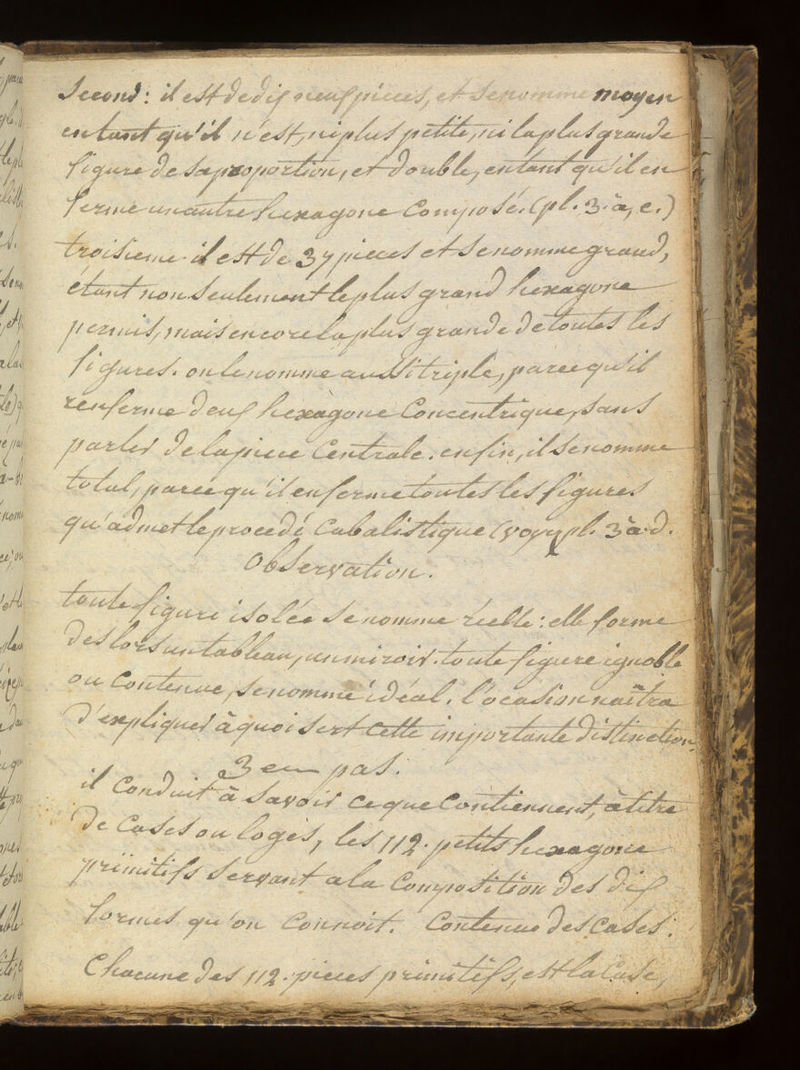 Second: il est de dix neuf pieces, et se nomme moyen
en tant qu'il n'est, ni plus petite, ni la plus grande
figure de sa proportion, et double, en tant qu'il en
ferme un autre hexagone composé. (pl. 3. à, c.)
troisieme il est de 37 pieces et se nomme grand,
étant non seulement le plus grand hexagone
permis, mais encore la plus grande de toutes les
figures. on le nomme aussi triple, parce qu'il
renferme deux hexagone concentrique, sans
parler de la piece centrale. enfin, il se nomme
total, parce qu'il enferme toutes les figures
qu'admet le procedé cabalistique (voyez pl. 3 à d.
Observation.
toute figure isolée se nomme réelle: elle forme
des lors un tableau, un miroir. toute figure ignoble
ou contenue, se nomme idéal. l'ocasion naîtra
d'expliquer à quoi sert cette importante distinction.
3eme pas.
il conduit à savoir ce que contiennent, à titre
de cases ou loges, les 112. petits hexagone
primitifs servant a la composition des dix
formes qu'on connoit. Contenue des cases:
Chacune des 112. pieces primitifs, est la case,